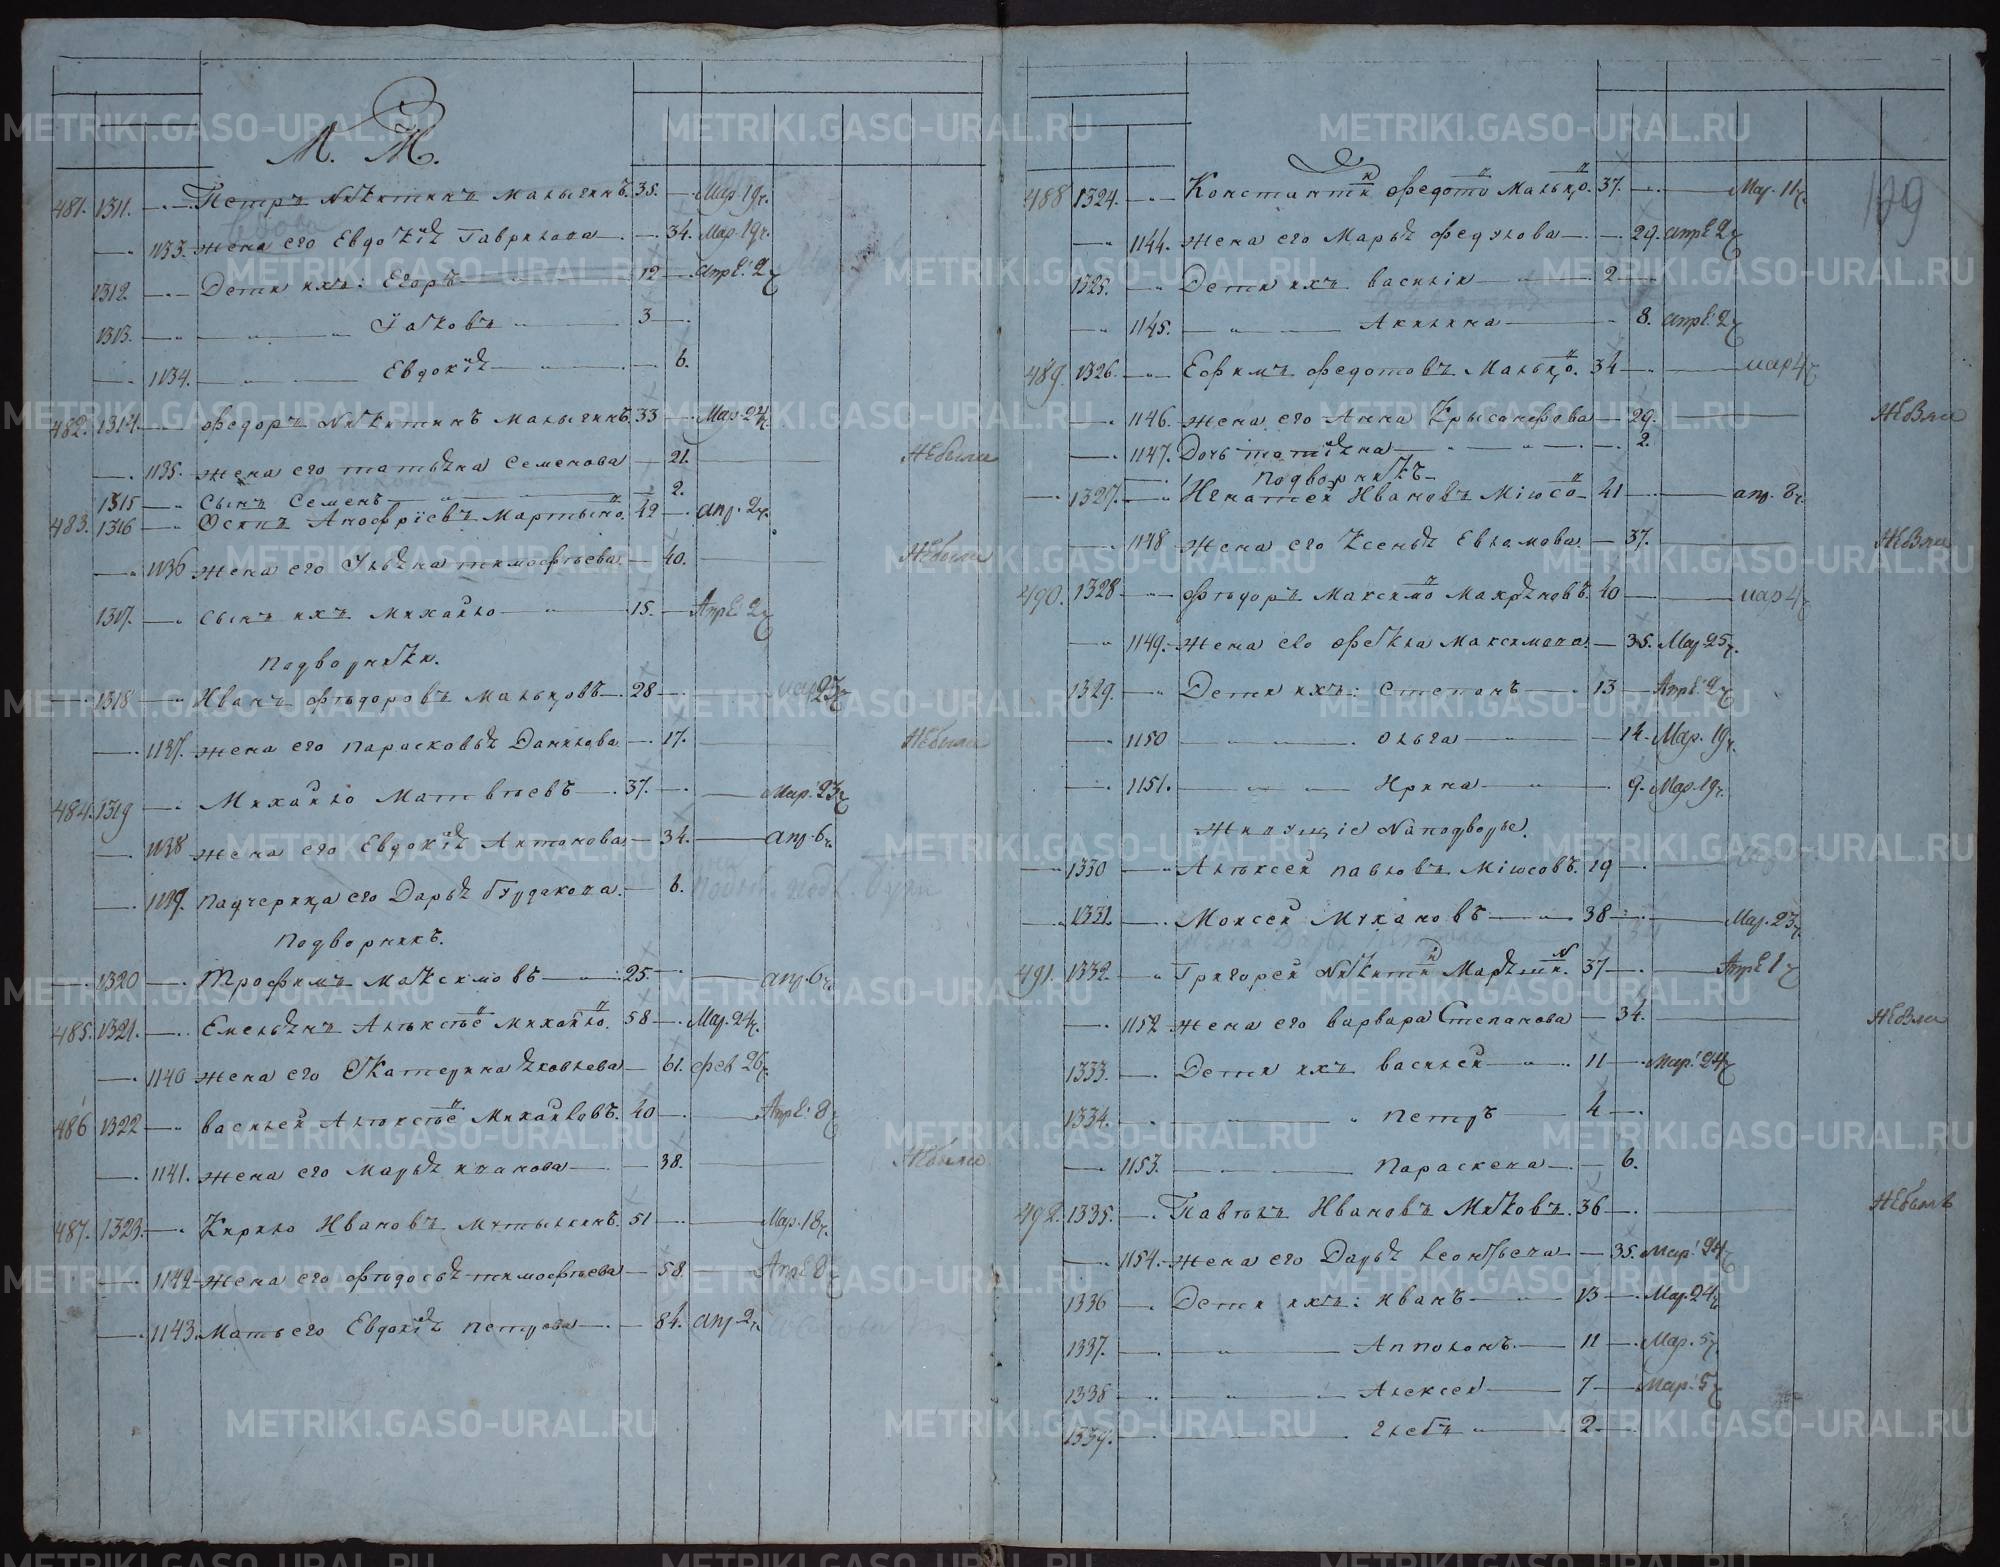 М. М.
481. 1311. Петръ Никитинъ Малыгинъ. 35. Мар. 19ч.
вдова
1133. жена его Евдокія Гаврилова 34. Мар. 19ч.
1312. Дети ихъ: Егоръ 12 апрѣ. 2
1313. Іаковъ 3
1134. Евдокія 6.
482. 1314. Федоръ Никитинъ Малыгинъ. 33 Мар. 24
1135. жена его татьяна Семенова 21. Небыла
1315 Сынъ Семенъ 2.
483. 1316 Осипъ Анофріевъ Мартыно. 42 апр. 2ч.
1136 жена его Ульяна тимофѣева 40. Небыла
1317. Сынъ ихъ Михайло 15. Апрѣ. 2
подворники.
1318 Иванъ Фѣдоровъ Мальцовъ 28 мар 23
1137. жена его парасковья Данилова 17. Небыла
484. 1319 Михайло Матвѣевъ 37. Мар. 23
1138 жена его Евдокія Антонова 34. апр. 6ч
1139. падчерица его Дарья Рудакова. 6.
подворникъ.
1320 Трофимъ Максимовъ 25. апр. 6ч
485. 1321. Емельянъ Алѣксѣе Михайло. 58 Мар. 24
1140 жена его Екатерина яковлева 61. фев 26
486 1322 василей Алѣксѣе Михайловъ. 40 Апрѣ. 8
1141. жена его Марья иванова 38. Небыла
487. 1323. Кирило Ивановъ Мутылкинъ. 51 Мар. 18ч.
1142 жена его фѣдосья тимофѣева 58 Апрѣ 8
1143. Мать его Евдокія петрова 84. апр 2ч
129
488 1324. Константи федото Мальцо. 37. Мар. 11ч.
1144. жена его Марья федулова 29. апрѣ 2
1325. Дети ихъ василій 2
1145. Акилина 8. апрѣ. 2
489 1326. Ефимъ федотовъ Мальцо. 34 мар 4
1146. жена его Анна Хрысанфова 29. Небыла
1147. Дочь татіяна 2.
подворникъ
1327. Игнатей Ивановъ Міясо 41 апр. 8ч
1148 жена его Ксенья Евламова. 37. Небыла
490. 1328 фѣдоръ Максимо Макряновъ. 40 мар 4
1149. жена его фекла Максимова. 35. Мар 25ч.
1329. Дети ихъ: степанъ 13 Апрѣ. 2
1150 Ольга 14. Мар. 19ч.
1151. Ирина 9. Мар. 19ч.
Живущіе Наподворье.
1330 Алѣксей павловъ Міясовъ. 19
1331. Моисей Михановъ 38 Мар. 23
491. 1332. Григорей Никити Маряши. 37 Апрѣ 1
1152. жена его варвара Степанова 34. Небыла
1333. Дети ихъ василей 11 Мар. 24
1334. петръ 4
1153. Параскева 6.
492. 1335. Павѣлъ Ивановъ Мяковъ. 36 Небылъ
1154. жена его Дарья леонтьева 35. Мар. 24
1336 Дети ихъ: иванъ 13 Мар. 24
1337. Апполонъ 11 Мар. 5
1338 Алексей 7 Мар. 5
1339. глебъ 2
METRIKI.GASO-URAL.RU